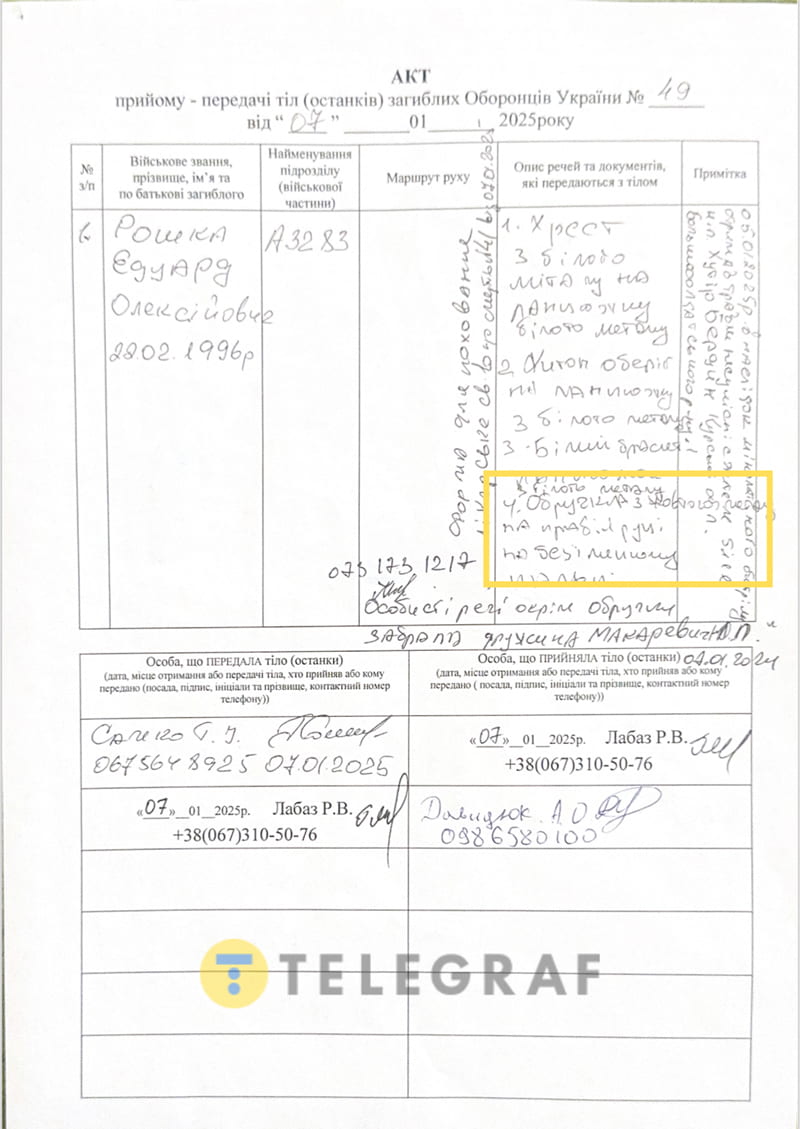 АКТ
прийому - передачі тіл (останків) загиблих Оборонців України № 49
від “ 07 ” 01 2025року
№ з/п
Військове звання,
прізвище, ім’я та
по батькові загиблого
Найменування
підрозділу
(військової
частини)
Маршрут руху
Опис речей та документів,
які передаються з тілом
Примітка
Рошка
Едуард
Олексійович
22.02.1996р
А3283
Форма для поховання
1. Хрест
з білого
міталу на
ланцюжку
білого металу
2. Житон оберіг
на ланцюжку
з білого металу
3. Білий браслет
з білого металу
4. Обручка з
на правій руці
на безіменному
пальці
073 173 1217
Особисті речі окрім обручки
забрала дружина Макаревич
07.01.2024
Особа, що ПЕРЕДАЛА тіло (останки)
(дата, місце отримання або передачі тіла, хто прийняв або кому
передано (посада, підпис, ініціали та прізвище, контактний номер
телефону))
Особа, що ПРИЙНЯЛА тіло (останки)
(дата, місце отримання або передачі тіла, хто прийняв або кому
передано ( посада, підпис, ініціали та прізвище, контактний номер
телефону))
0675648925 07.01.2025
«07»__01__2025р. Лабаз Р.В.
+38(067)310-50-76
«07»__01__2025р. Лабаз Р.В.
+38(067)310-50-76
Давидюк А.О
0986580100
TELEGRAF